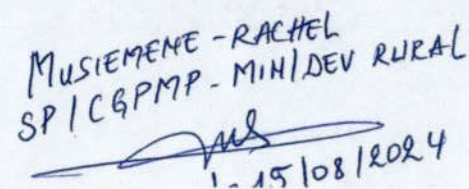 MUSIEMENE - RACHEL
SP / CGPMP - MIN / DEV RURAL
15/08/2024